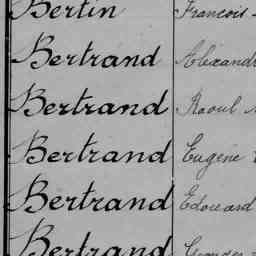 Bertin François
Bertrand Alexandr
Bertrand Raoul
Bertrand Eugène
Bertrand Edouard
Bertrand Georges